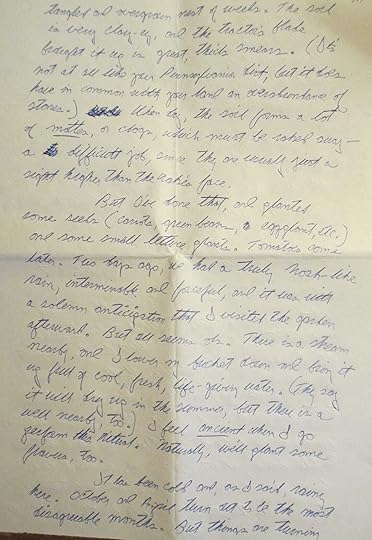 tangled and overgrown nest of weeds. The soil
is very clay-ey, and the tractor's blade
brought it up in great, thick smears. (It's
not at all like your Pennsylvania dirt, but it does
have in common with your land an overabundance of
stones.) When dry, the soil forms a lot
of mottes, or clogs, which must be raked away –
a difficult job, since they are usually just a
slight higher than the rake's face.
But I've done that, and planted
some seeds (carrots, green beans, eggplant, etc.)
and some small lettuce plants. Tomatoes come
later. Two days ago, we had a truly Noah-like
rain, interminable and forceful, and it was with
a solemn anticipation that I visited the garden
afterward. But all seems ok. There is a stream
nearby, and I lower my bucket down and draw it
up full of cool, fresh, life-giving water. (They say
it will dry up in the summer, but there is a
well nearby, too.) I feel ancient when I go
perform this ritual. Naturally, we'll plant some
flowers, too.
It has been cold and, as I said, rainy
here. October and April turn out to be the most
disagreeable months. But things are turning